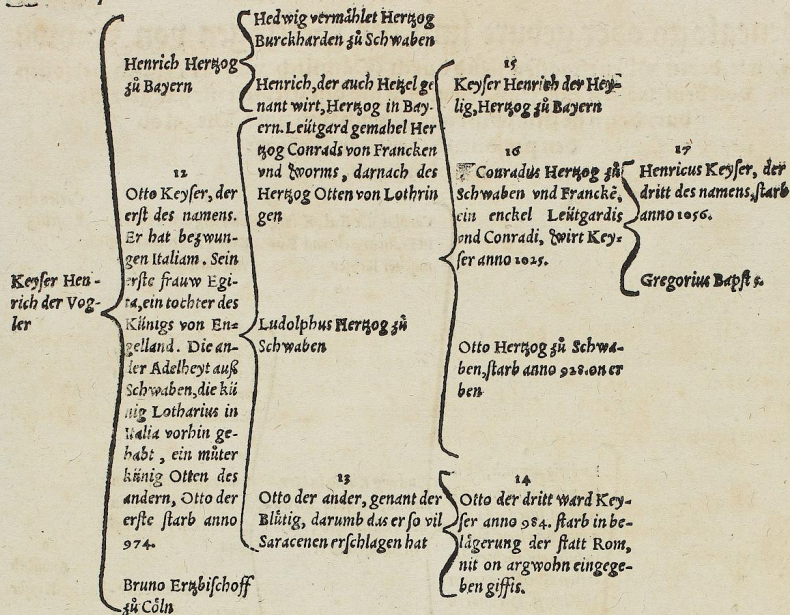 Keyser Hen-
rich der Vog-
ler
Henrich Hertzog
zů Bayern
12
Otto Keyser, der
erst des namens.
Er hat bezwun-
gen Italiam. Sein
erste frauw Egi-
ta, ein tochter des
Künigs von En-
gelland. Die an-
der Adelheyt auß
Schwaben, die kü
nig Lotharius in
Italia vorhin ge-
habt, ein můter
künig Otten des
andern, Otto der
erste starb anno
974.
Bruno Ertzbischoff
zů Cöln
Hedwig vermählet Hertzog
Burckharden zů Schwaben
Henrich, der auch Hetzel ge
nant wirt, Hertzog in Bay-
ern. Leütgard gemahel Her
tzog Conrads von Francken
vnd Worms, darnach des
Hertzog Otten von Lothrin
gen
Ludolphus Hertzog zů
Schwaben
13
Otto der ander, genant der
Blůtig, darumb das er so vil
Saracenen erschlagen hat
15
Keyser Henrich der Hey-
lig, Hertzog zů Bayern
16
Conradus Hertzog zů
Schwaben vnd Franckẽ,
ein enckel Leütgardis
vnd Conradi, wirt Key-
ser anno 1025.
Otto Hertzog zů Schwa-
ben, starb anno 928. on er
ben
14
Otto der dritt ward Key-
ser anno 984. starb in be-
lägerung der statt Rom,
nit on argwohn eingege-
ben giffts.
17
Henricus Keyser, der
dritt des namens, starb
anno 1056.
Gregorius Bapst 5.